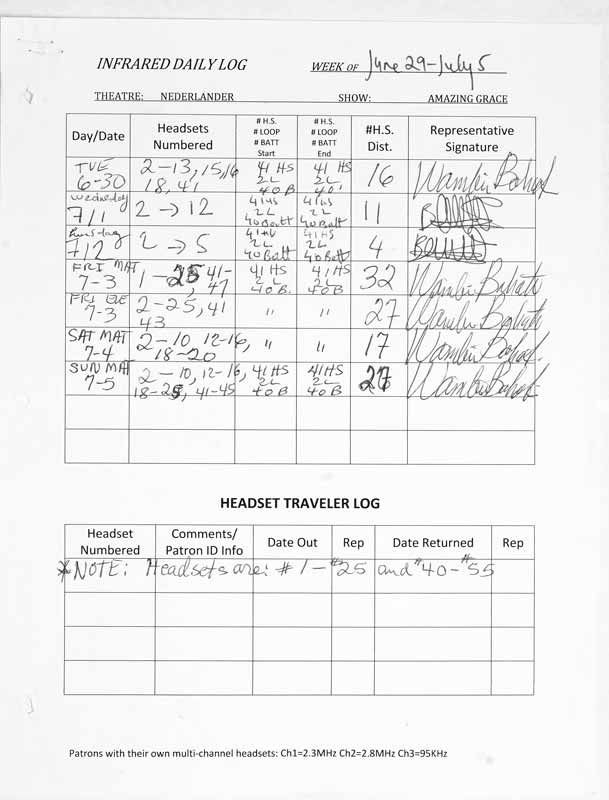 INFRARED DAILY LOG WEEK OF June 29-July 5
THEATRE: NEDERLANDER SHOW: AMAZING GRACE
Day/Date Headsets Numbered # H.S. # LOOP # BATT Start # H.S. # LOOP # BATT End #H.S. Dist. Representative Signature
TUE 6-30 2-13, 15,16 18, 41 41 HS 2L 40 B 41 HS 2L 40 16
Wednesday 7/1 2 → 12 41 HS 2L 40 Batt 41 HS 2L 40 Batt 11
Thursday 7/2 2 → 5 41 HS 2L 40 Batt 41 HS 2L 40 Batt 4
FRI MAT 7-3 1-25, 41-47 41 HS 2L 40 B. 41 HS 2L 40 B. 32
FRI EVE 7-3 2-25, 41 43 " " 27
SAT MAT 7-4 2-10, 12-16, 18-20 " " 17
SUN MAT 7-5 2-10, 12-16, 18-25, 41-45 41 HS 2L 40 B 41 HS 2L 40 B 27
HEADSET TRAVELER LOG
Headset Numbered Comments/ Patron ID Info Date Out Rep Date Returned Rep
* NOTE: Headsets are: #1-#25 and #40-#55
Patrons with their own multi-channel headsets: Ch1=2.3MHz Ch2=2.8MHz Ch3=95KHz